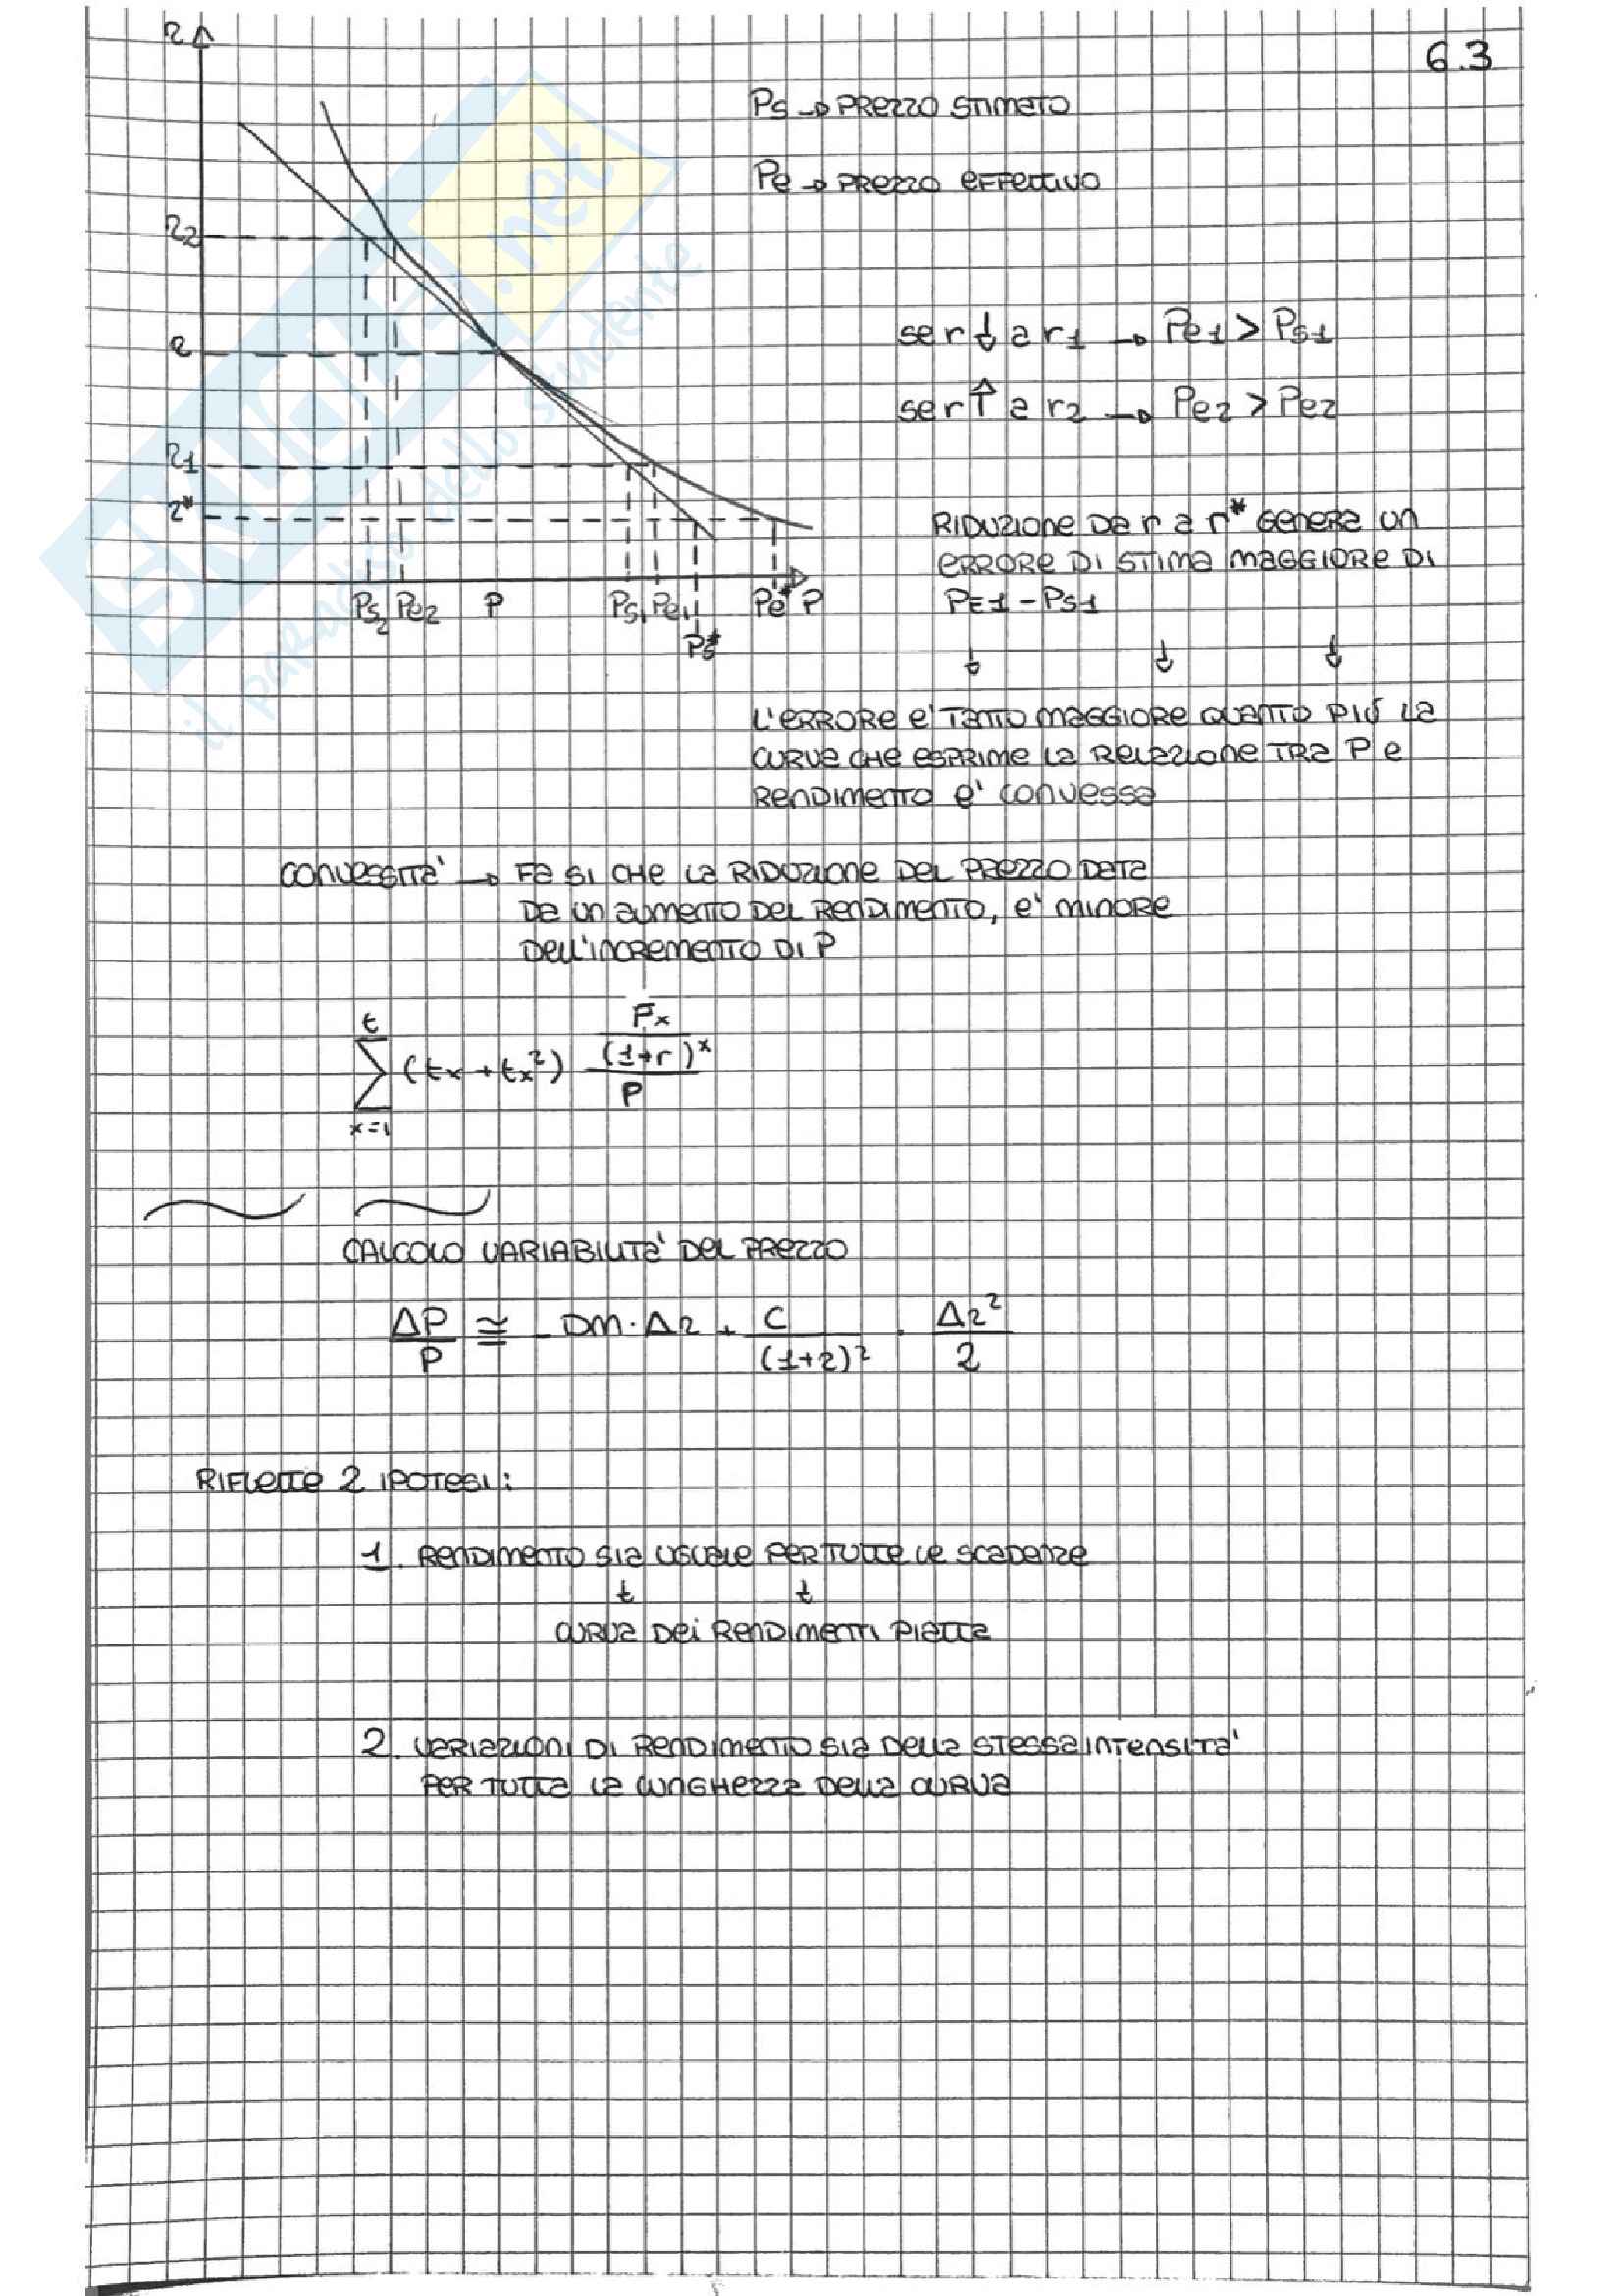 6.3
r
Ps → PREZZO STIMATO
Pe → PREZZO EFFETTIVO
r2
r
r1
r*
Ps2 Pe2 P Ps1 Pe1 Pe* P
Ps*
se r ↓ a r1 → Pe1 > Ps1
se r ↑ a r2 → Pe2 > Pe2
RIDUZIONE DA r a r* GENERA UN
ERRORE DI STIMA MAGGIORE DI
PE1 - PS1
↓ ↓ ↓
L'ERRORE E' TANTO MAGGIORE QUANTO PIÚ LA
CURVA CHE ESPRIME LA RELAZIONE TRA P e
RENDIMENTO E' CONVESSA
CONVESSITA' → FA SI CHE LA RIDUZIONE DEL PREZZO DATA
DA UN AUMENTO DEL RENDIMENTO, E' MINORE
DELL'INCREMENTO DI P
t
∑ (tx + tx²) Fx / (1+r)^x / P
x=1
CALCOLO VARIABILITA' DEL PREZZO
ΔP/P ≅ - DM · Δr + C/(1+r)² · Δr²/2
RIFLETTE 2 IPOTESI:
1. RENDIMENTO SIA UGUALE PER TUTTE LE SCADENZE
↓ ↓
CURVA DEI RENDIMENTI PIATTA
2. VARIAZIONI DI RENDIMENTO SIA DELLA STESSA INTENSITA'
PER TUTTA LA LUNGHEZZA DELLA CURVA
SKUOLA.net
il paradiso dello studente